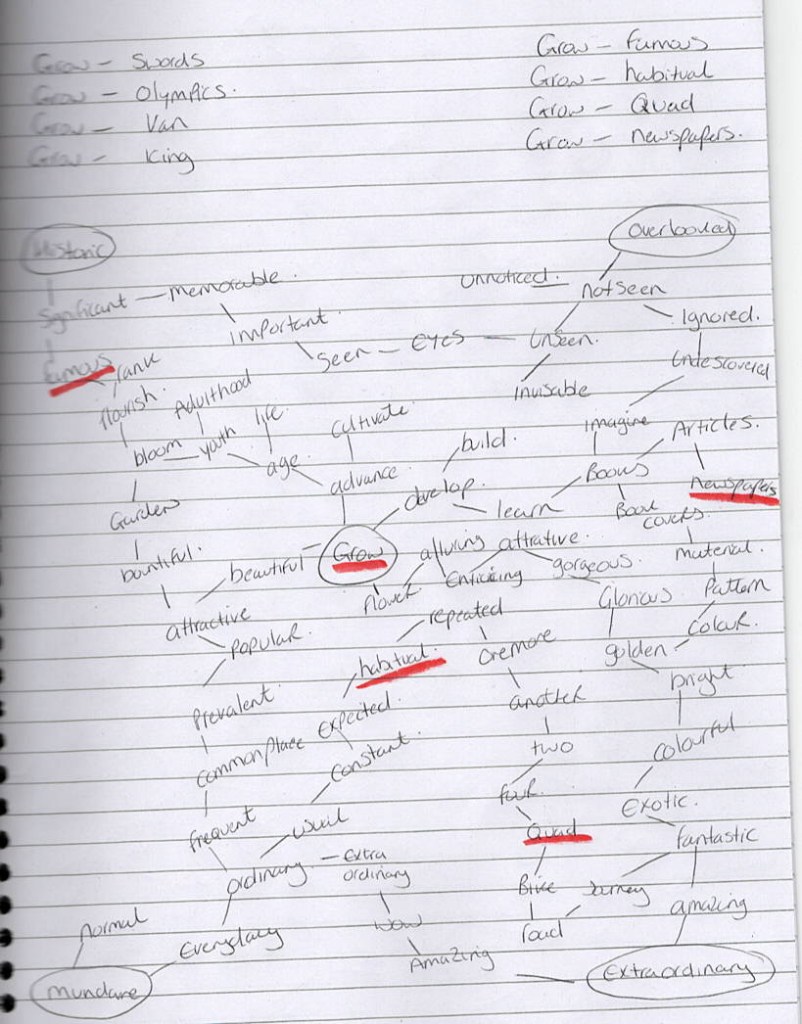 Grow - Swords
Grow - Famous
Grow - Olympics.
Grow - habitual
Grow - Van
Grow - Quad
Grow - King
Grow - newspapers.
Historic
Overlooked
Significant - memorable.
Unnoticed.
not seen
important.
Ignored.
Seen - eyes - Unseen.
famous
rank
Undescovered
flourish.
Adulthood
life.
invisable
cultivate
imagine
Articles.
bloom - youth - age
build.
advance.
Books
newspapers
Garden
develop.
learn
Book
covers.
bountiful.
beautiful
Grow
alluring
attrative.
material.
flower
Enticing
gorgeous.
Pattern
attractive
repeated
Glorious
Colour.
popular.
habitual.
onemore
golden
bright
Prevalent.
another
expected.
commonplace
constant.
two
colourful
four
exotic.
frequent
usual
Quad
fantastic
ordinary - extra
ordinary
Bike
Journey
amazing
normal
wow
road
Everyday
Amazing
mundane
Extraordinary